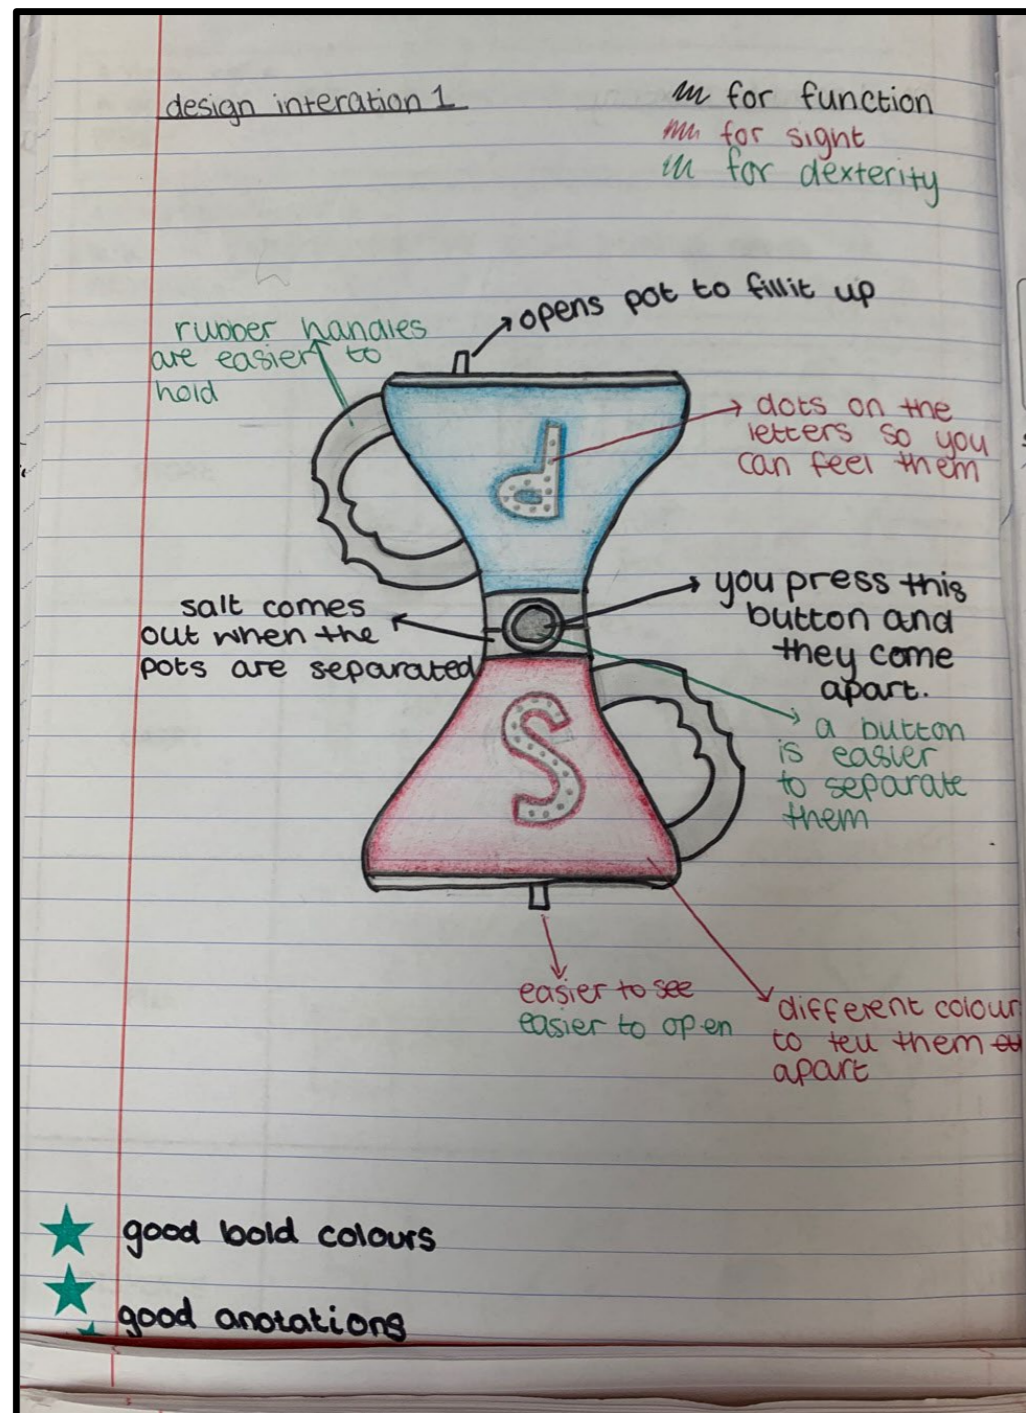 design interation 1
for function
for sight
for dexterity
opens pot to fillit up
rubber handles
are easier to
hold
dots on the
letters so you
can feel them
P
salt comes
out when the
pots are separated
you press this
button and
they come
apart.
a button
is easier
to separate
them
S
easier to see
easier to open
different colour
to tell them
apart
good bold colours
good anotations